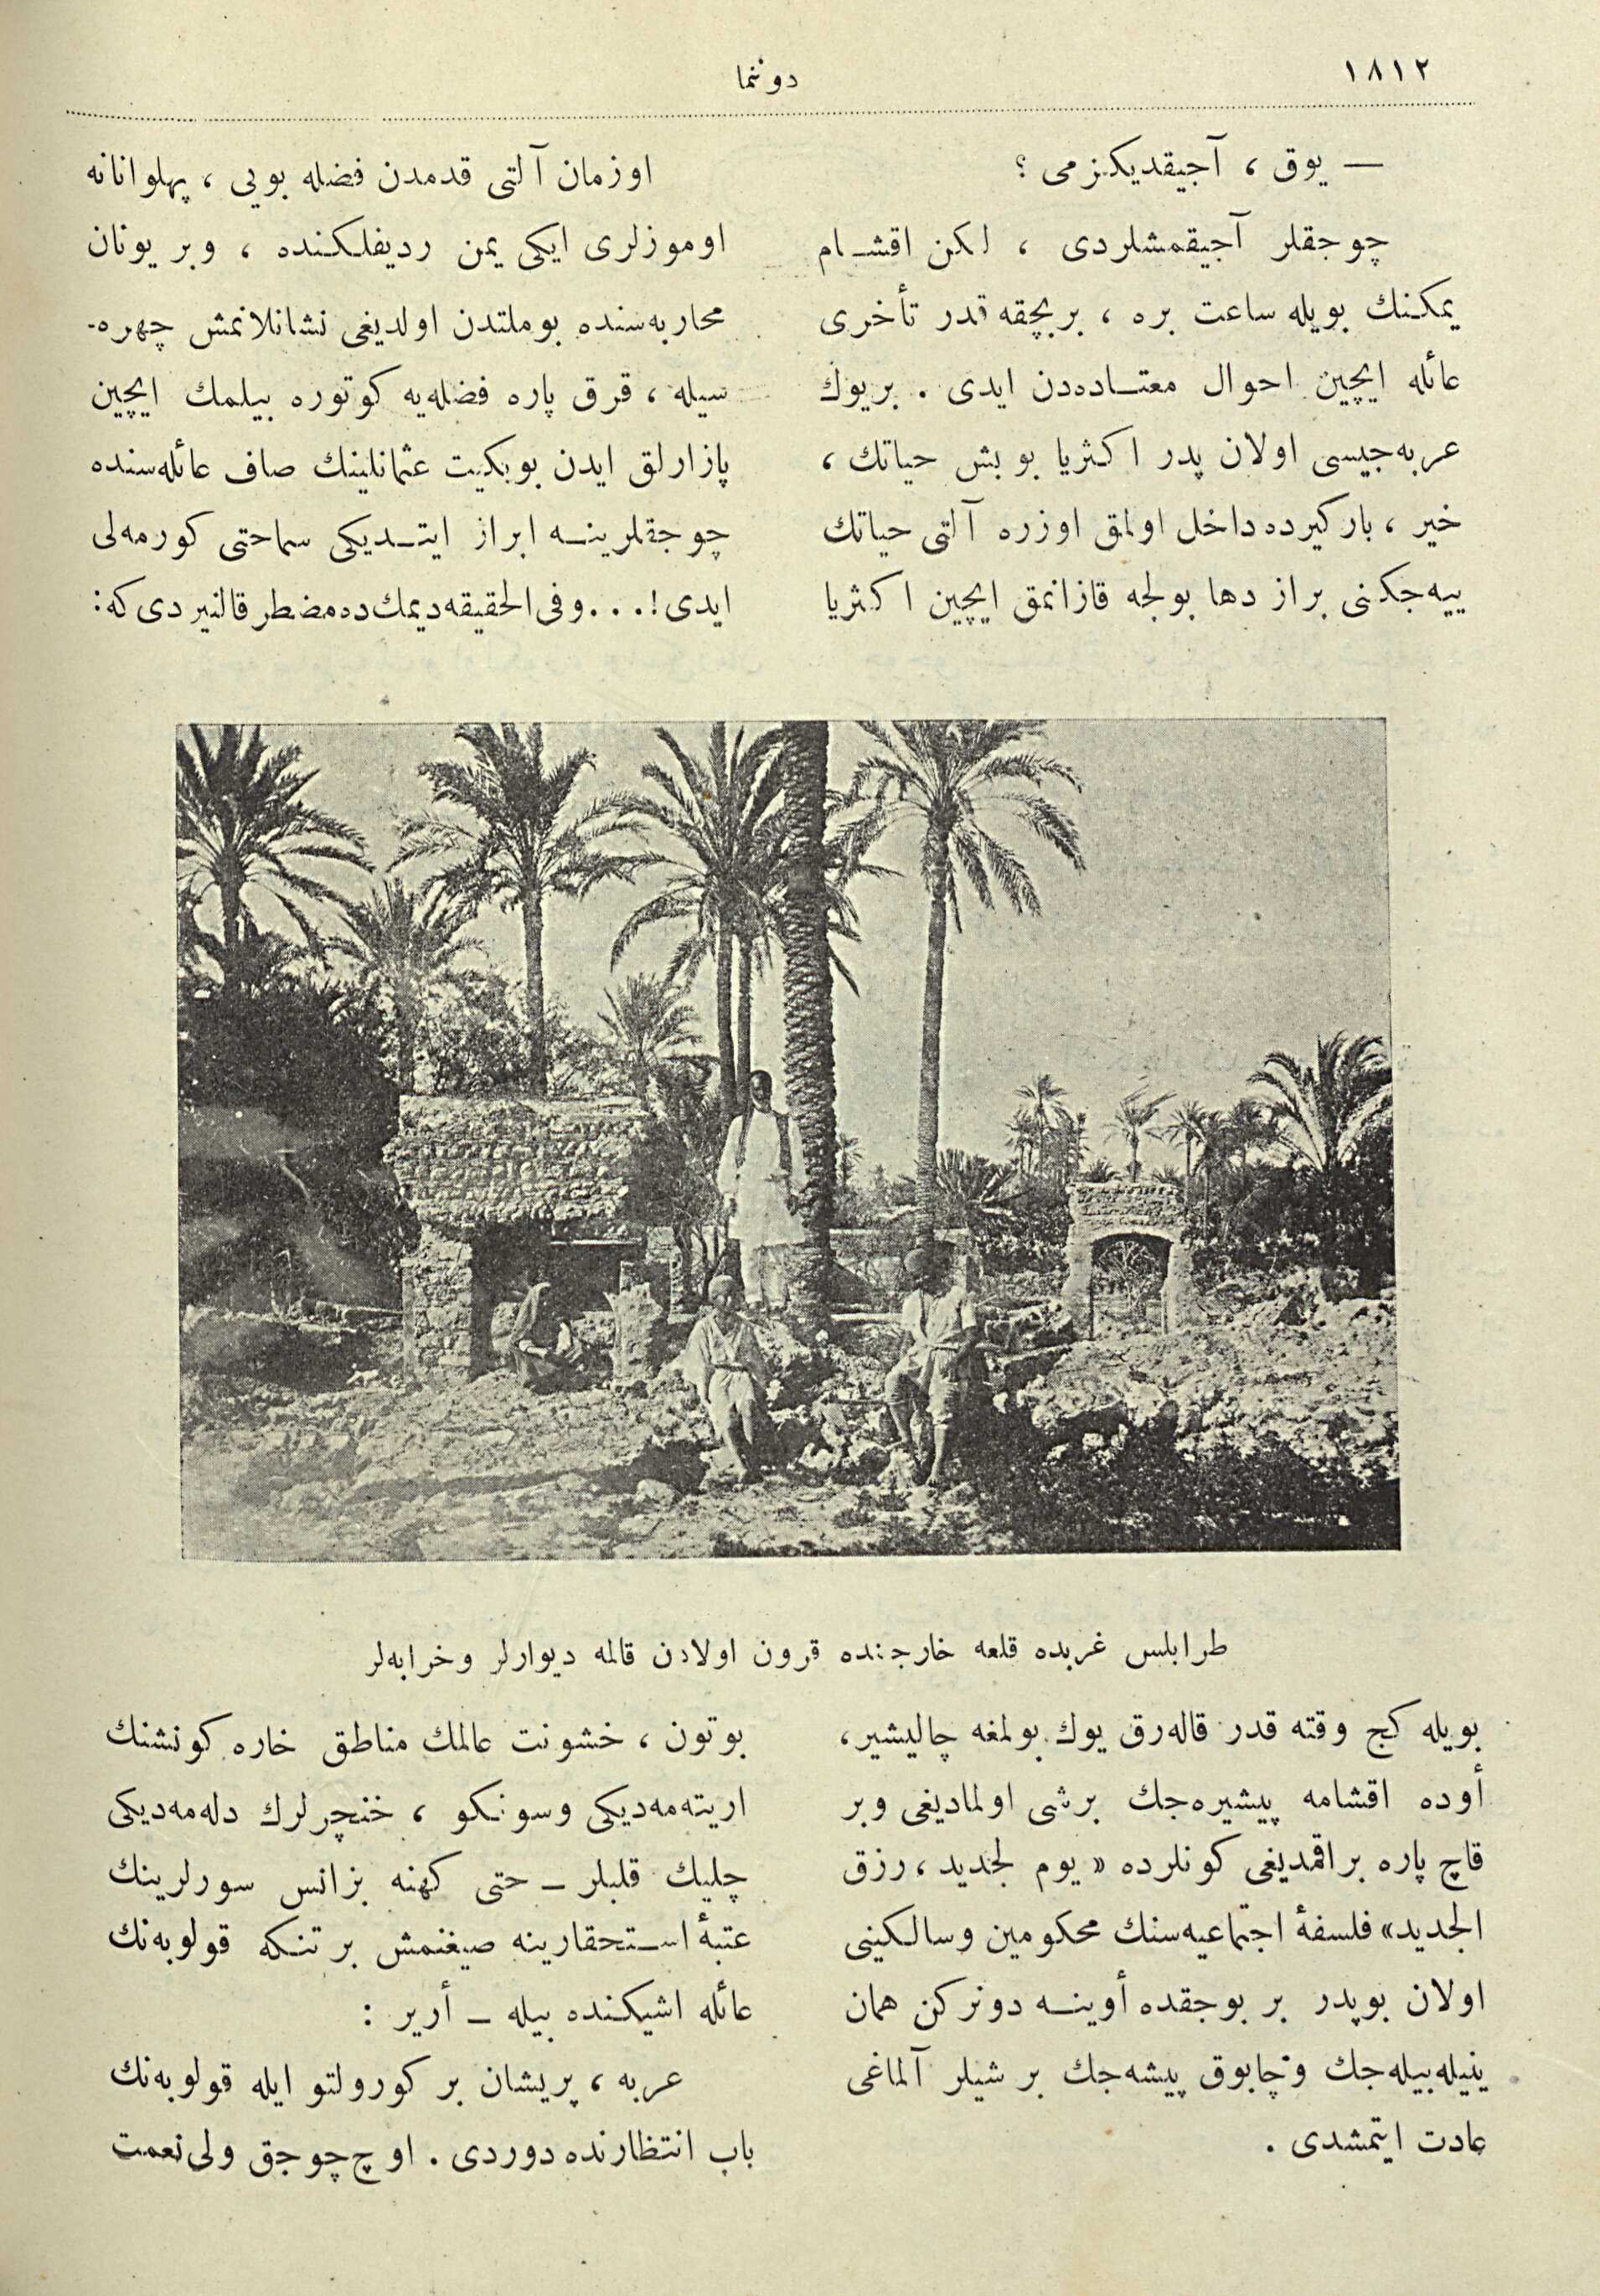 ١٨١٢
دوننما
— يوق ، آجيقديكزمى ؟
چوجقلر آجيقمشلردى ، لكن اقشام
يمكنك بويله ساعت بره ، بربچقه قدر تأخرى
عائله ايچين احوال معتاده‌دن ايدى . بريوك
عربه‌جيسى اولان پدر اكثريا بو بش حياتك ،
خير ، باركيرده داخل اولمق اوزره آلتى حياتك
ييه‌جكنى براز دها بولجه قازانمق ايچين اكثريا
بويله كج وقته قدر قاله‌رق يوك بولمغه چاليشير،
أوده اقشامه پيشيره‌جك برشى اولماديغى وبر
قاچ پاره براقمديغى كونلرده « يوم لجديد ، رزق
الجديد» فلسفهٔ اجتماعيه‌سنك محكومين وسالكينى
اولان بوپدر بر بوجقده أوينه دونركن همان
ينيله‌بيله‌جك وچابوق پيشه‌جك بر شيلر آلماغى
عادت ايتمشدى .
اوزمان آلتى قدمدن فضله بويى ، پهلوانانه
اوموزلرى ايكى يمن رديفلكنده ، وبر يونان
محاربه‌سنده بوملتدن اولديغى نشانلانمش چهره‌-
سيله ، قرق پاره فضله‌يه كوتوره بيلمك ايچين
پازارلق ايدن بوبكيت عثمانلينك صاف عائله‌سنده
چوجقلرينه ابراز ايتديكى سماحتى كورمه‌لى
ايدى !... وفى الحقيقه ديمك‌ده مضطر قالنيردى كه :
طرابلس غربده قلعه خارجنده قرون اولادن قالمه ديوارلر وخرابه‌لر
بوتون ، خشونت عالمك مناطق خاره كونشنك
اريته‌مه‌ديكى وسونكو ، خنچرلرك دله‌مه‌ديكى
چليك قلبلر — حتى كهنه بزانس سورلرينك
عتبهٔ استحقارينه صيغنمش بر تنكه قولوبه‌نك
عائله اشيكنده بيله — أرير :
عربه ، پريشان بر كورولتو ايله قولوبه‌نك
باب انتظارنده دوردى . اوچ چوجق ولى نعمت